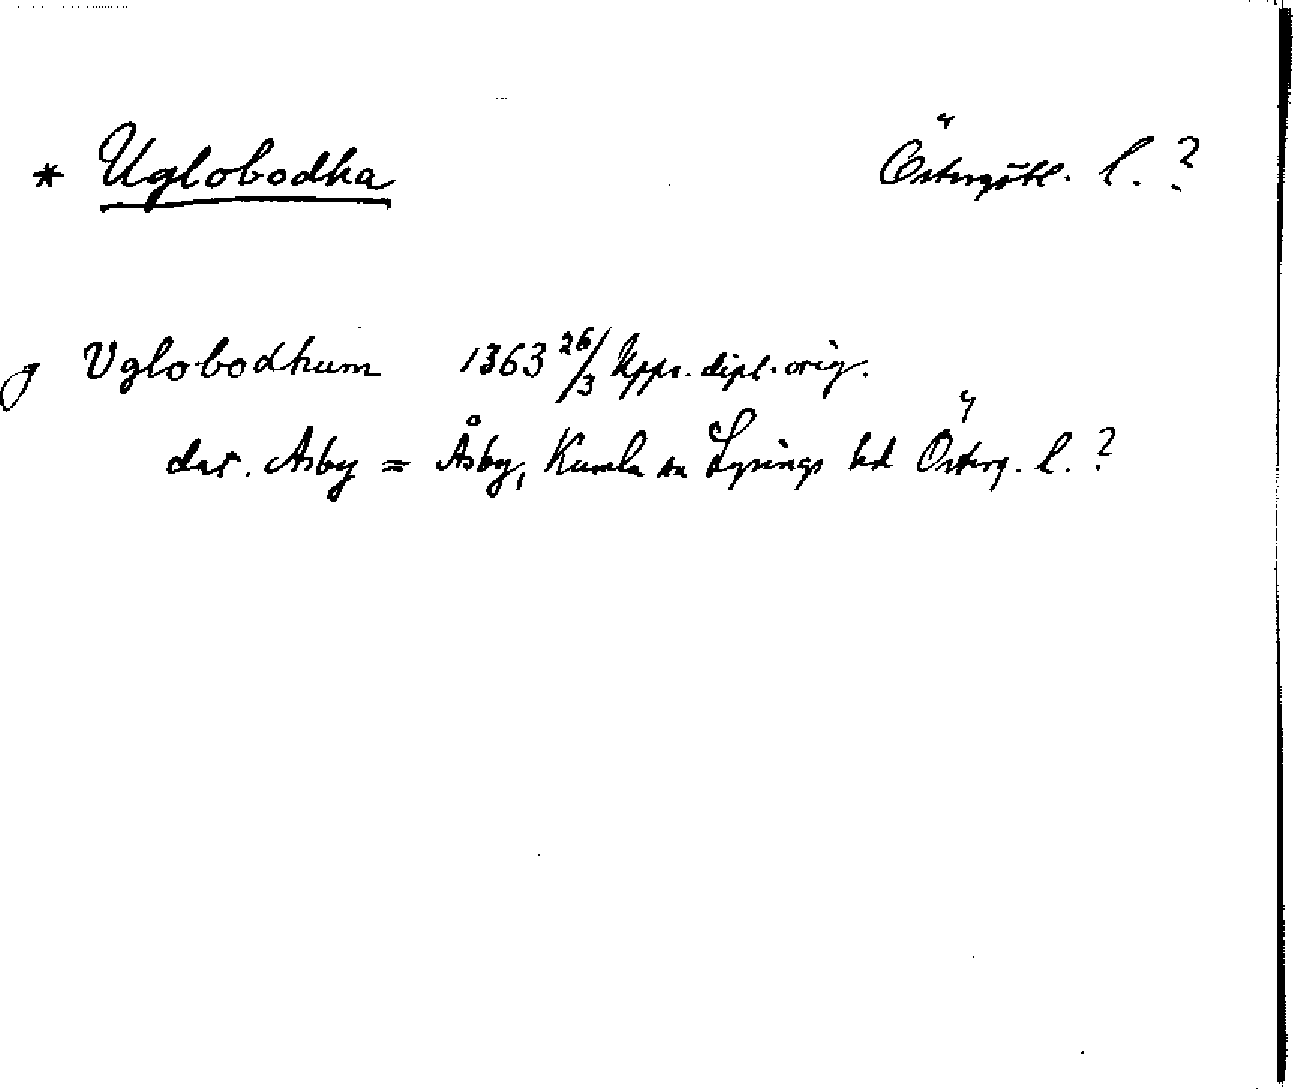 * Uglobodha Östergötl. l. ?
g Vglobodhum 1363 26/3 Upps. dipl. orig.
dat. Asby = Åsby, Kumla sn Lysings hd Österg. l. ?